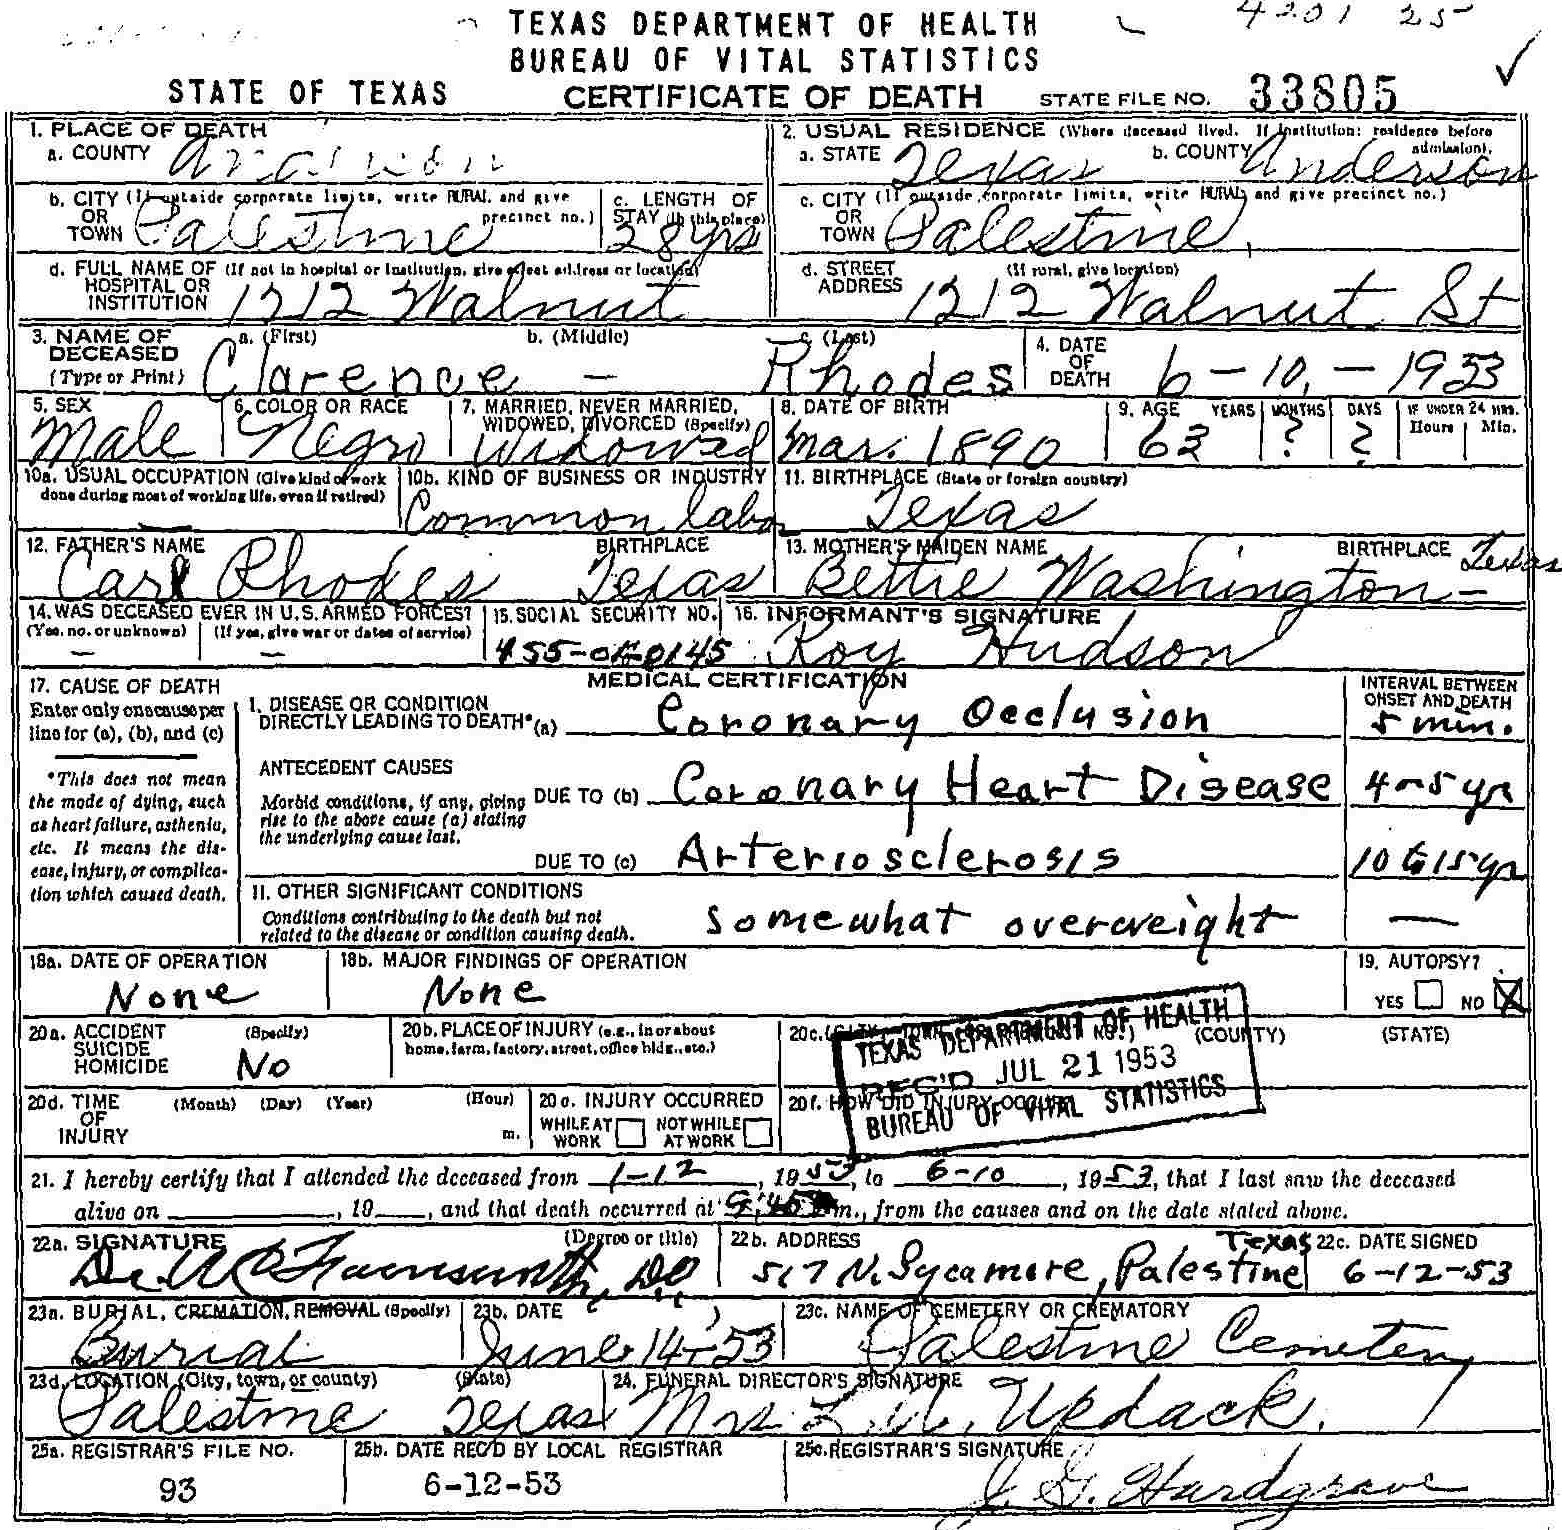 4201 25
TEXAS DEPARTMENT OF HEALTH
BUREAU OF VITAL STATISTICS
STATE OF TEXAS CERTIFICATE OF DEATH STATE FILE NO. 33805
1. PLACE OF DEATH
a. COUNTY Anderson
2. USUAL RESIDENCE (Where deceased lived. If institution: residence before admission).
a. STATE Texas b. COUNTY Anderson
b. CITY (If outside corporate limits, write RURAL and give precinct no.)
OR
TOWN Palestine
c. LENGTH OF STAY (In this place) 28 yrs
c. CITY (If outside corporate limits, write RURAL and give precinct no.)
OR
TOWN Palestine,
d. FULL NAME OF (If not in hospital or institution, give street address or location)
HOSPITAL OR
INSTITUTION 1212 Walnut
d. STREET (If rural, give location)
ADDRESS 1212 Walnut St
3. NAME OF DECEASED (Type or Print)
a. (First) b. (Middle) c. (Last)
Clarence – Rhodes
4. DATE OF DEATH 6-10,-1953
5. SEX Male
6. COLOR OR RACE Negro
7. MARRIED, NEVER MARRIED, WIDOWED, DIVORCED (Specify) Widowed
8. DATE OF BIRTH Mar. 1890
9. AGE YEARS MONTHS DAYS IF UNDER 24 HRS. Hours Min.
63 ? ?
10a. USUAL OCCUPATION (Give kind of work done during most of working life, even if retired)
10b. KIND OF BUSINESS OR INDUSTRY
Common labor
11. BIRTHPLACE (State or foreign country)
Texas
12. FATHER'S NAME BIRTHPLACE
Carl Rhodes Texas
13. MOTHER'S MAIDEN NAME BIRTHPLACE Texas
Bettie Washington –
14. WAS DECEASED EVER IN U.S. ARMED FORCES?
(Yes, no, or unknown) (If yes, give war or dates of service)
– –
15. SOCIAL SECURITY NO.
16. INFORMANT'S SIGNATURE
Roy Hudson
MEDICAL CERTIFICATION
17. CAUSE OF DEATH
Enter only one cause per line for (a), (b), and (c)
*This does not mean the mode of dying, such as heart failure, asthenia, etc. It means the disease, injury, or complication which caused death.
I. DISEASE OR CONDITION
DIRECTLY LEADING TO DEATH* (a) Coronary Occlusion
INTERVAL BETWEEN ONSET AND DEATH
5 min.
ANTECEDENT CAUSES
Morbid conditions, if any, giving rise to the above cause (a) stating the underlying cause last.
DUE TO (b) Coronary Heart Disease 4-5 yr
DUE TO (c) Arteriosclerosis 10 to 15 yr
II. OTHER SIGNIFICANT CONDITIONS
Conditions contributing to the death but not related to the disease or condition causing death.
somewhat overweight —
18a. DATE OF OPERATION
None
18b. MAJOR FINDINGS OF OPERATION
None
19. AUTOPSY?
YES NO X
20a. ACCIDENT SUICIDE HOMICIDE (Specify)
No
20b. PLACE OF INJURY (e.g., in or about home, farm, factory, street, office bldg., etc.)
20c. (CITY, TOWN, OR PRECINCT NO.) (COUNTY) (STATE)
TEXAS DEPARTMENT OF HEALTH
REC'D JUL 21 1953
BUREAU OF VITAL STATISTICS
20d. TIME OF INJURY (Month) (Day) (Year) (Hour) m.
20e. INJURY OCCURRED
WHILE AT WORK NOT WHILE AT WORK
20f. HOW DID INJURY OCCUR?
21. I hereby certify that I attended the deceased from 1-12, 1953, to 6-10, 1953, that I last saw the deceased
alive on , 19 , and that death occurred at m., from the causes and on the date stated above.
22a. SIGNATURE (Degree or title)
22b. ADDRESS
517 N. Sycamore, Palestine Texas
22c. DATE SIGNED
6-12-53
23a. BURIAL, CREMATION, REMOVAL (Specify)
Burial
23b. DATE
June 14-53
23c. NAME OF CEMETERY OR CREMATORY
Palestine Cemetery
23d. LOCATION (City, town, or county) (State)
Palestine Texas
24. FUNERAL DIRECTOR'S SIGNATURE
Mrs Updack.
25a. REGISTRAR'S FILE NO.
93
25b. DATE REC'D BY LOCAL REGISTRAR
6-12-53
25c. REGISTRAR'S SIGNATURE
J. G. Hardgrave